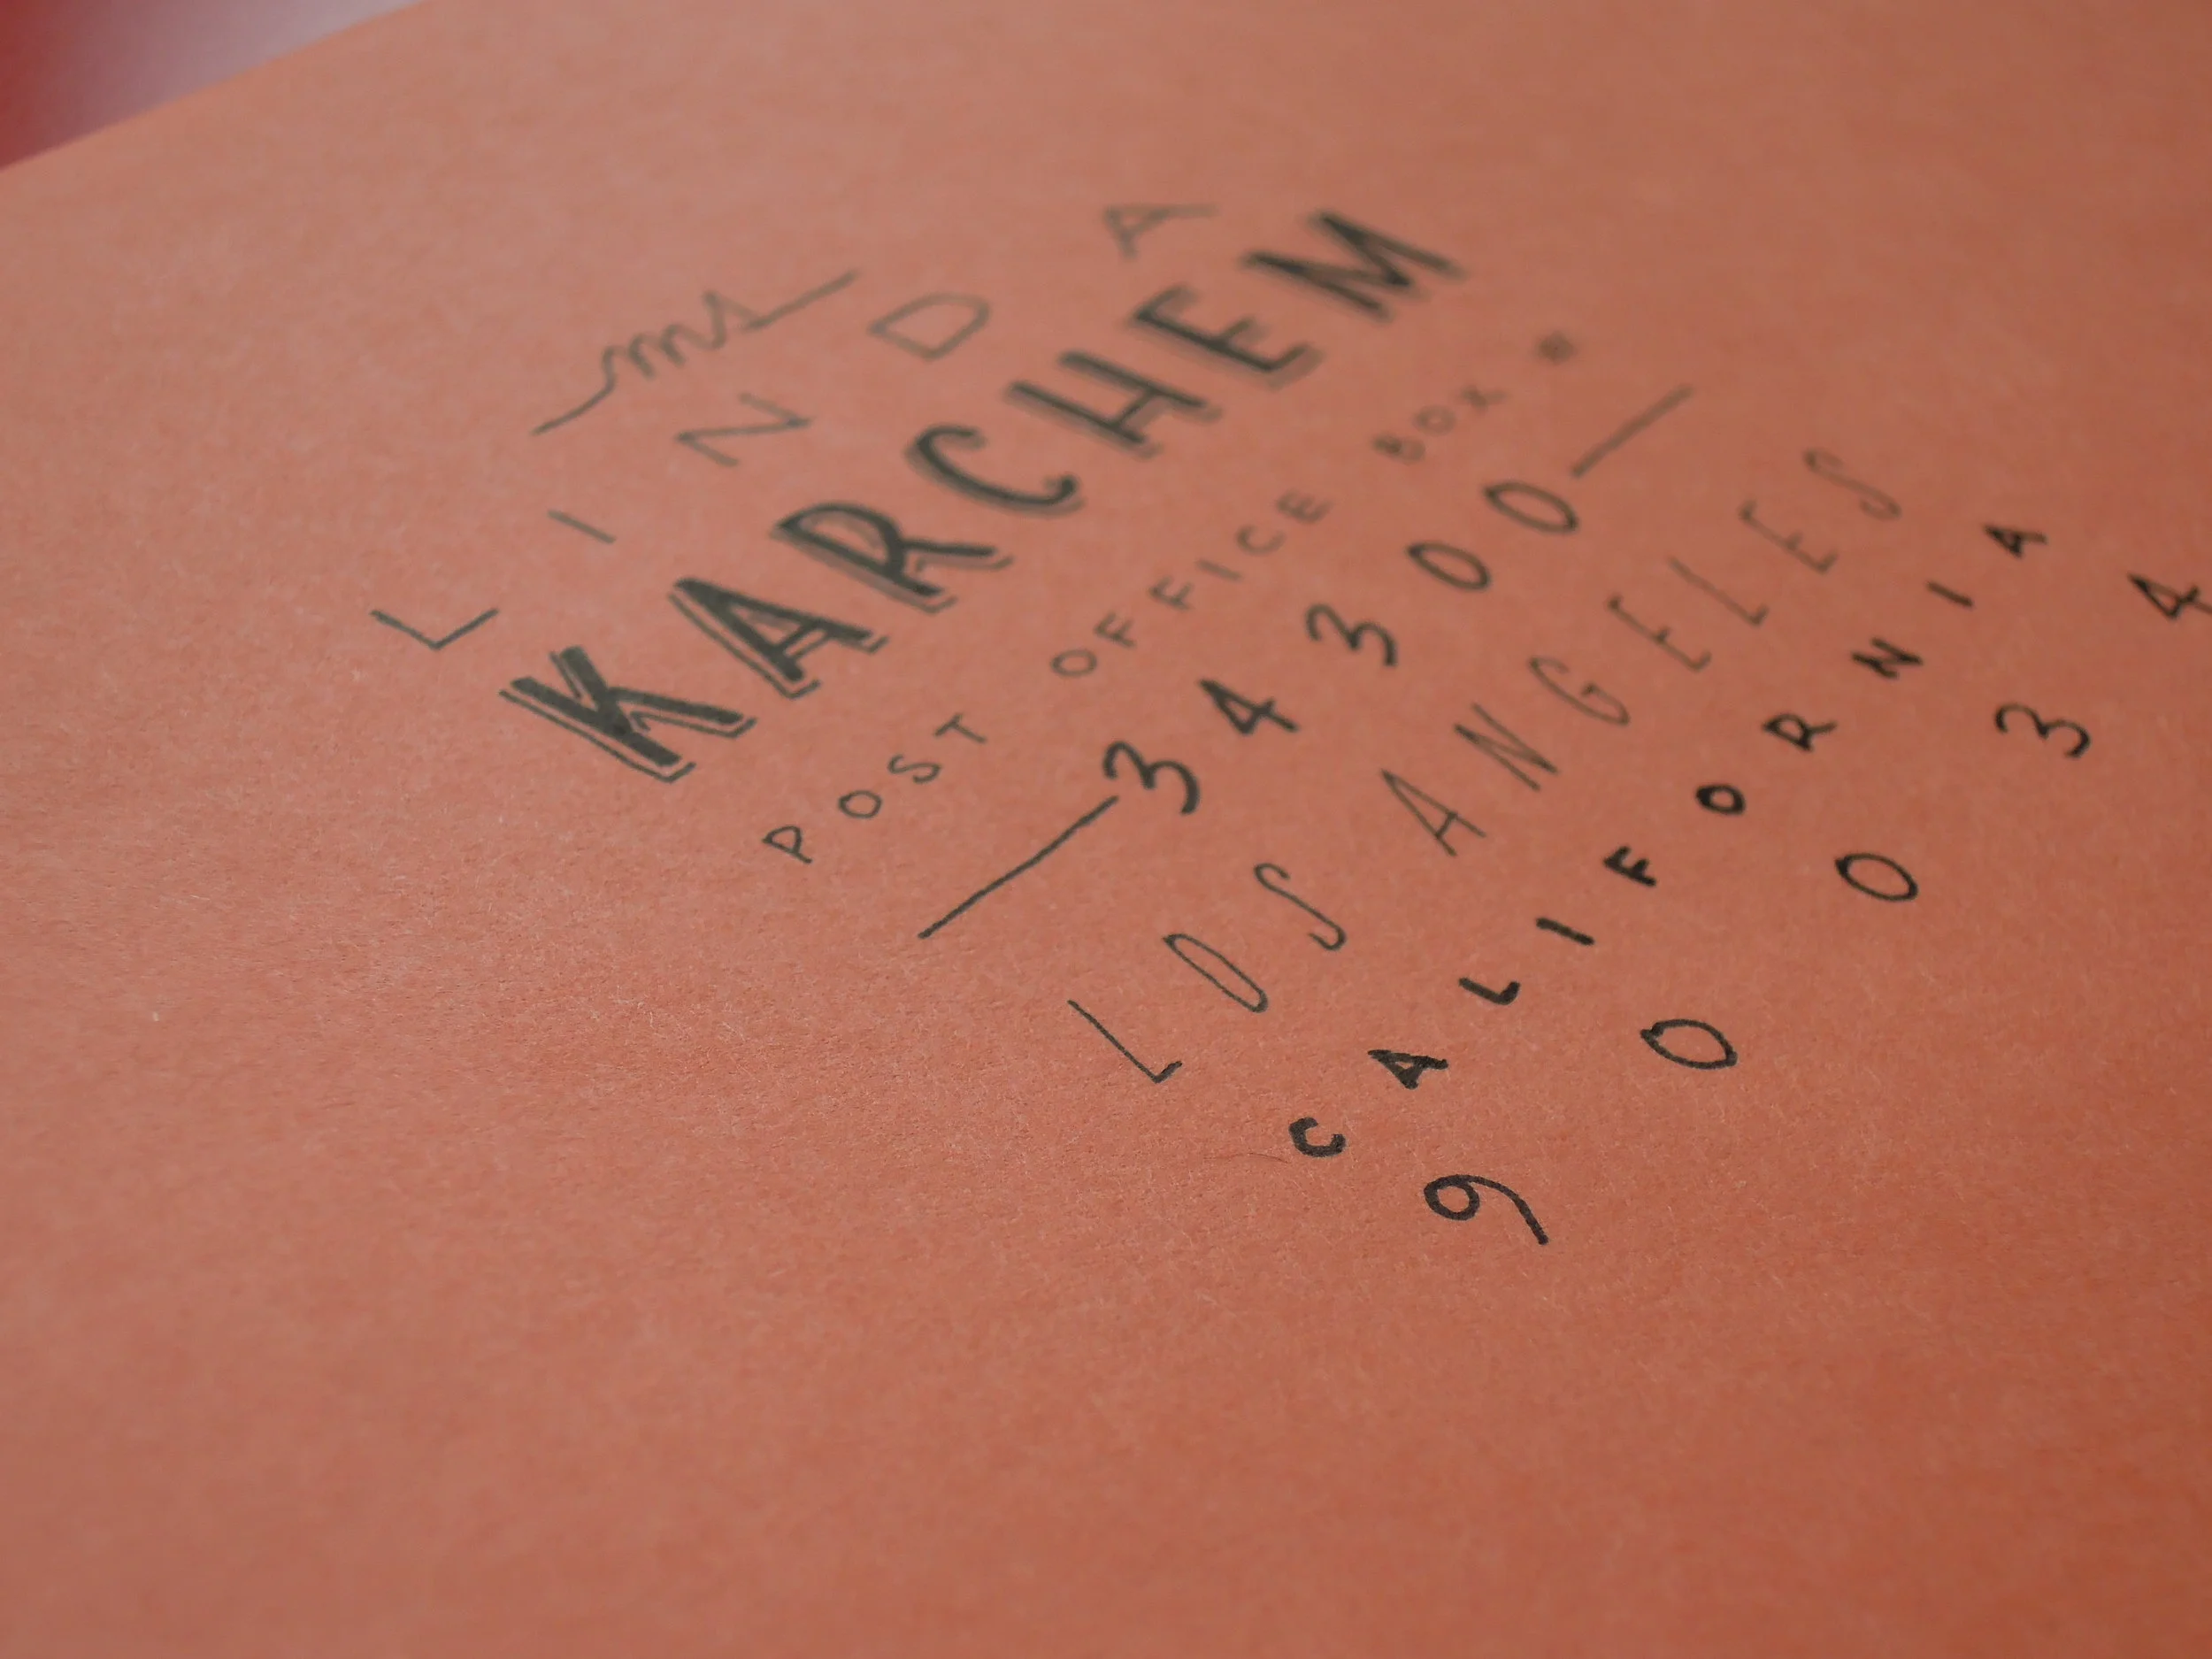 ms
LINDA
KARCHEM
POST OFFICE BOX #
34300
LOS ANGELES
CALIFORNIA
90034